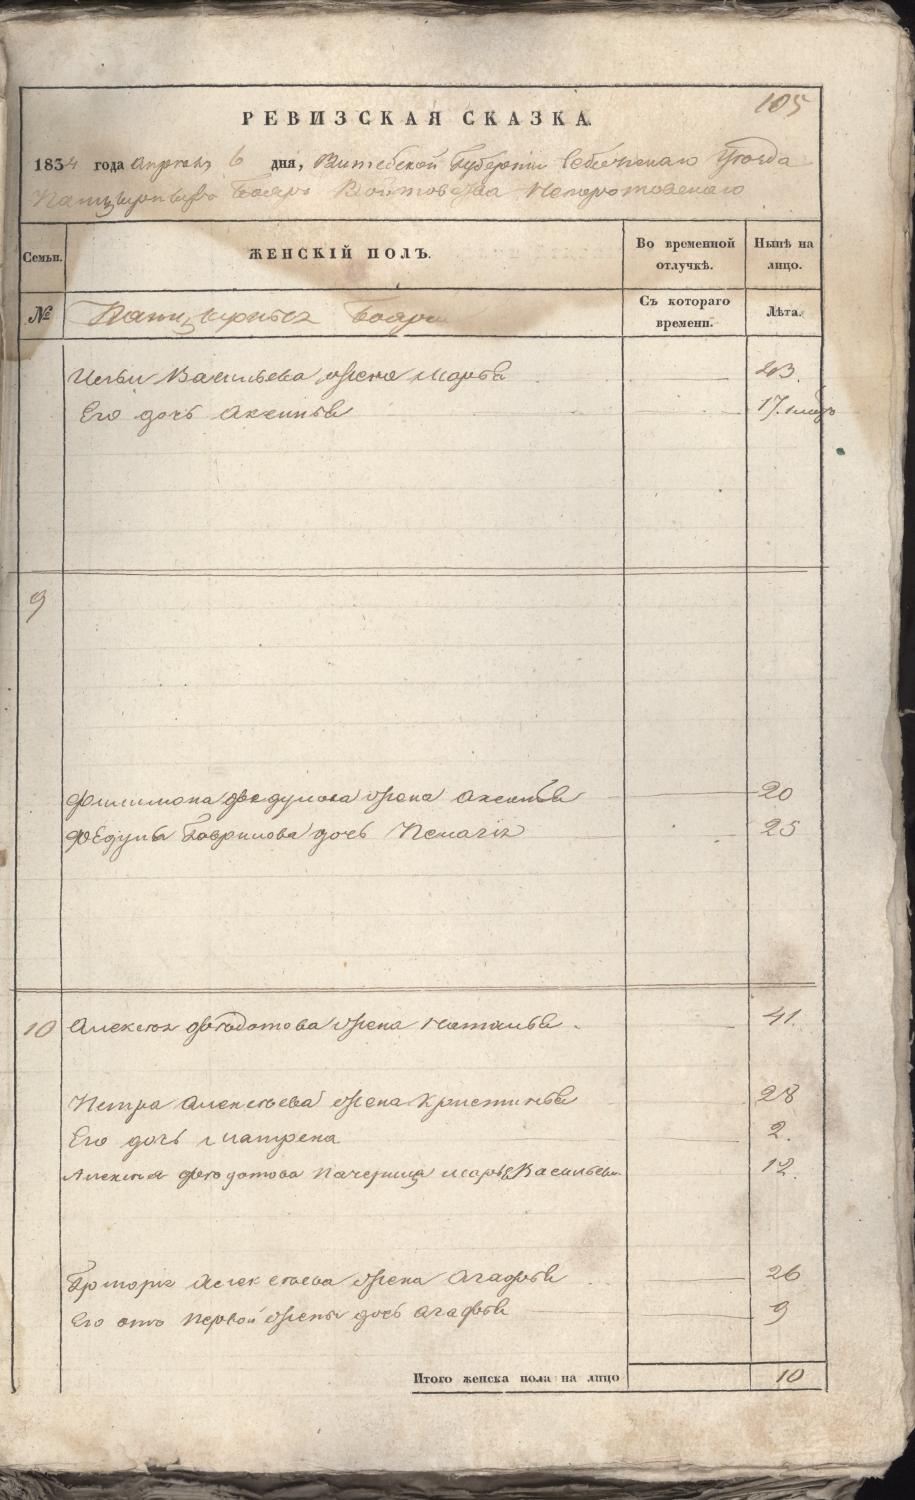 105
РЕВИЗСКАЯ СКАЗКА.
1834 года Апреля 6 дня, Витебской Губернии Себежскаго Уезда
Панцырныхъ Бояръ Войтовства Непоротовскаго
Семьи. ЖЕНСКІЙ ПОЛЪ. Во временной отлучкѣ. Нынѣ на лицо.
№ Панцырныхъ Бояръ Съ котораго времени. Лѣта.
Ильи Васильева жена Марья 23.
Его дочь Аксинья 17.
9
Филимона Федулова жена Аксинья 20
Федула Гаврилова дочь Пелагія 25
10 Алексея Феодотова жена Наталья 41.
Петра Алексеева жена Христинья 28
Его дочь Матрена 2.
Алексея Феодотова Пачерица Марья Васильева 12.
Григорія Алексеева жена Агафья 26
Его отъ первой жены дочь Агафья 9
Итого женска пола на лицо 10